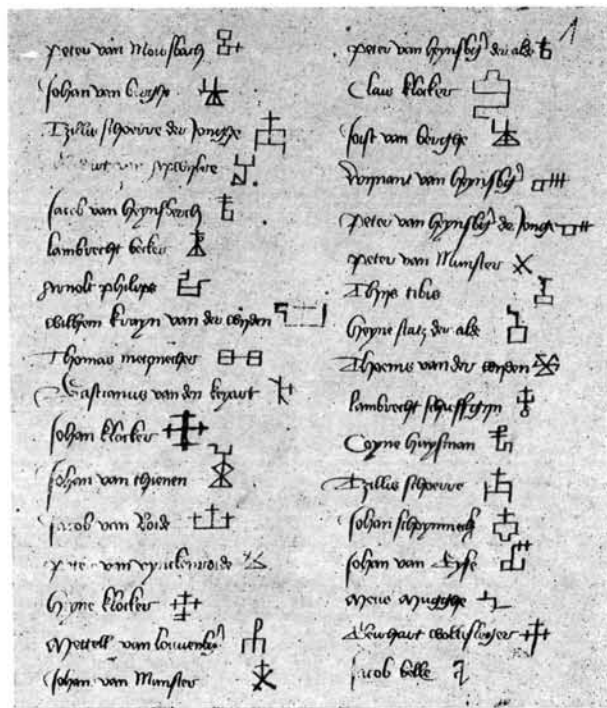 Peter van Mousbach
Johan van berghe
Tzillis schoerre der Jonghe
van
Jacob van heynsberch
lambrecht becker
Arnolt philips
wilhem kruyn van der wyden
Thomas
Bastianus van den
Johan klocker
Johan van thienen
Jacob van Roide
van
heyne klocker
Mettell van louvenb
Johan van Munster
1
Peter van heynsb der alde
Claus klocker
Joist van berghe
van heynsb
Peter van heynsb de Jonge
Peter van Munster
Thijs tibis
heyne statz der alde
Thoenis van der weyden
lambrecht
Coyne huysman
Tzillis schoerre
Johan
Johan van Eyse
Meus Mugghe
Lenhart
Jacob belle